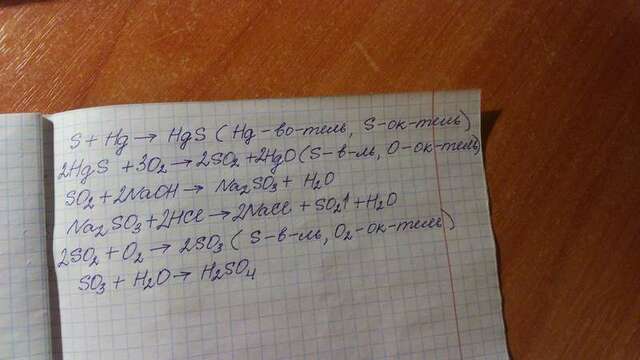 S + Hg → HgS (Hg-во-тель, S-ок-тель)
2HgS + 3O₂ → 2SO₂ + 2HgO (S-в-ль, O-ок-тель)
SO₂ + 2NaOH → Na₂SO₃ + H₂O
Na₂SO₃ + 2HCl → 2NaCl + SO₂↑ + H₂O
2SO₂ + O₂ → 2SO₃ (S-в-ль, O₂-ок-тель)
SO₃ + H₂O → H₂SO₄